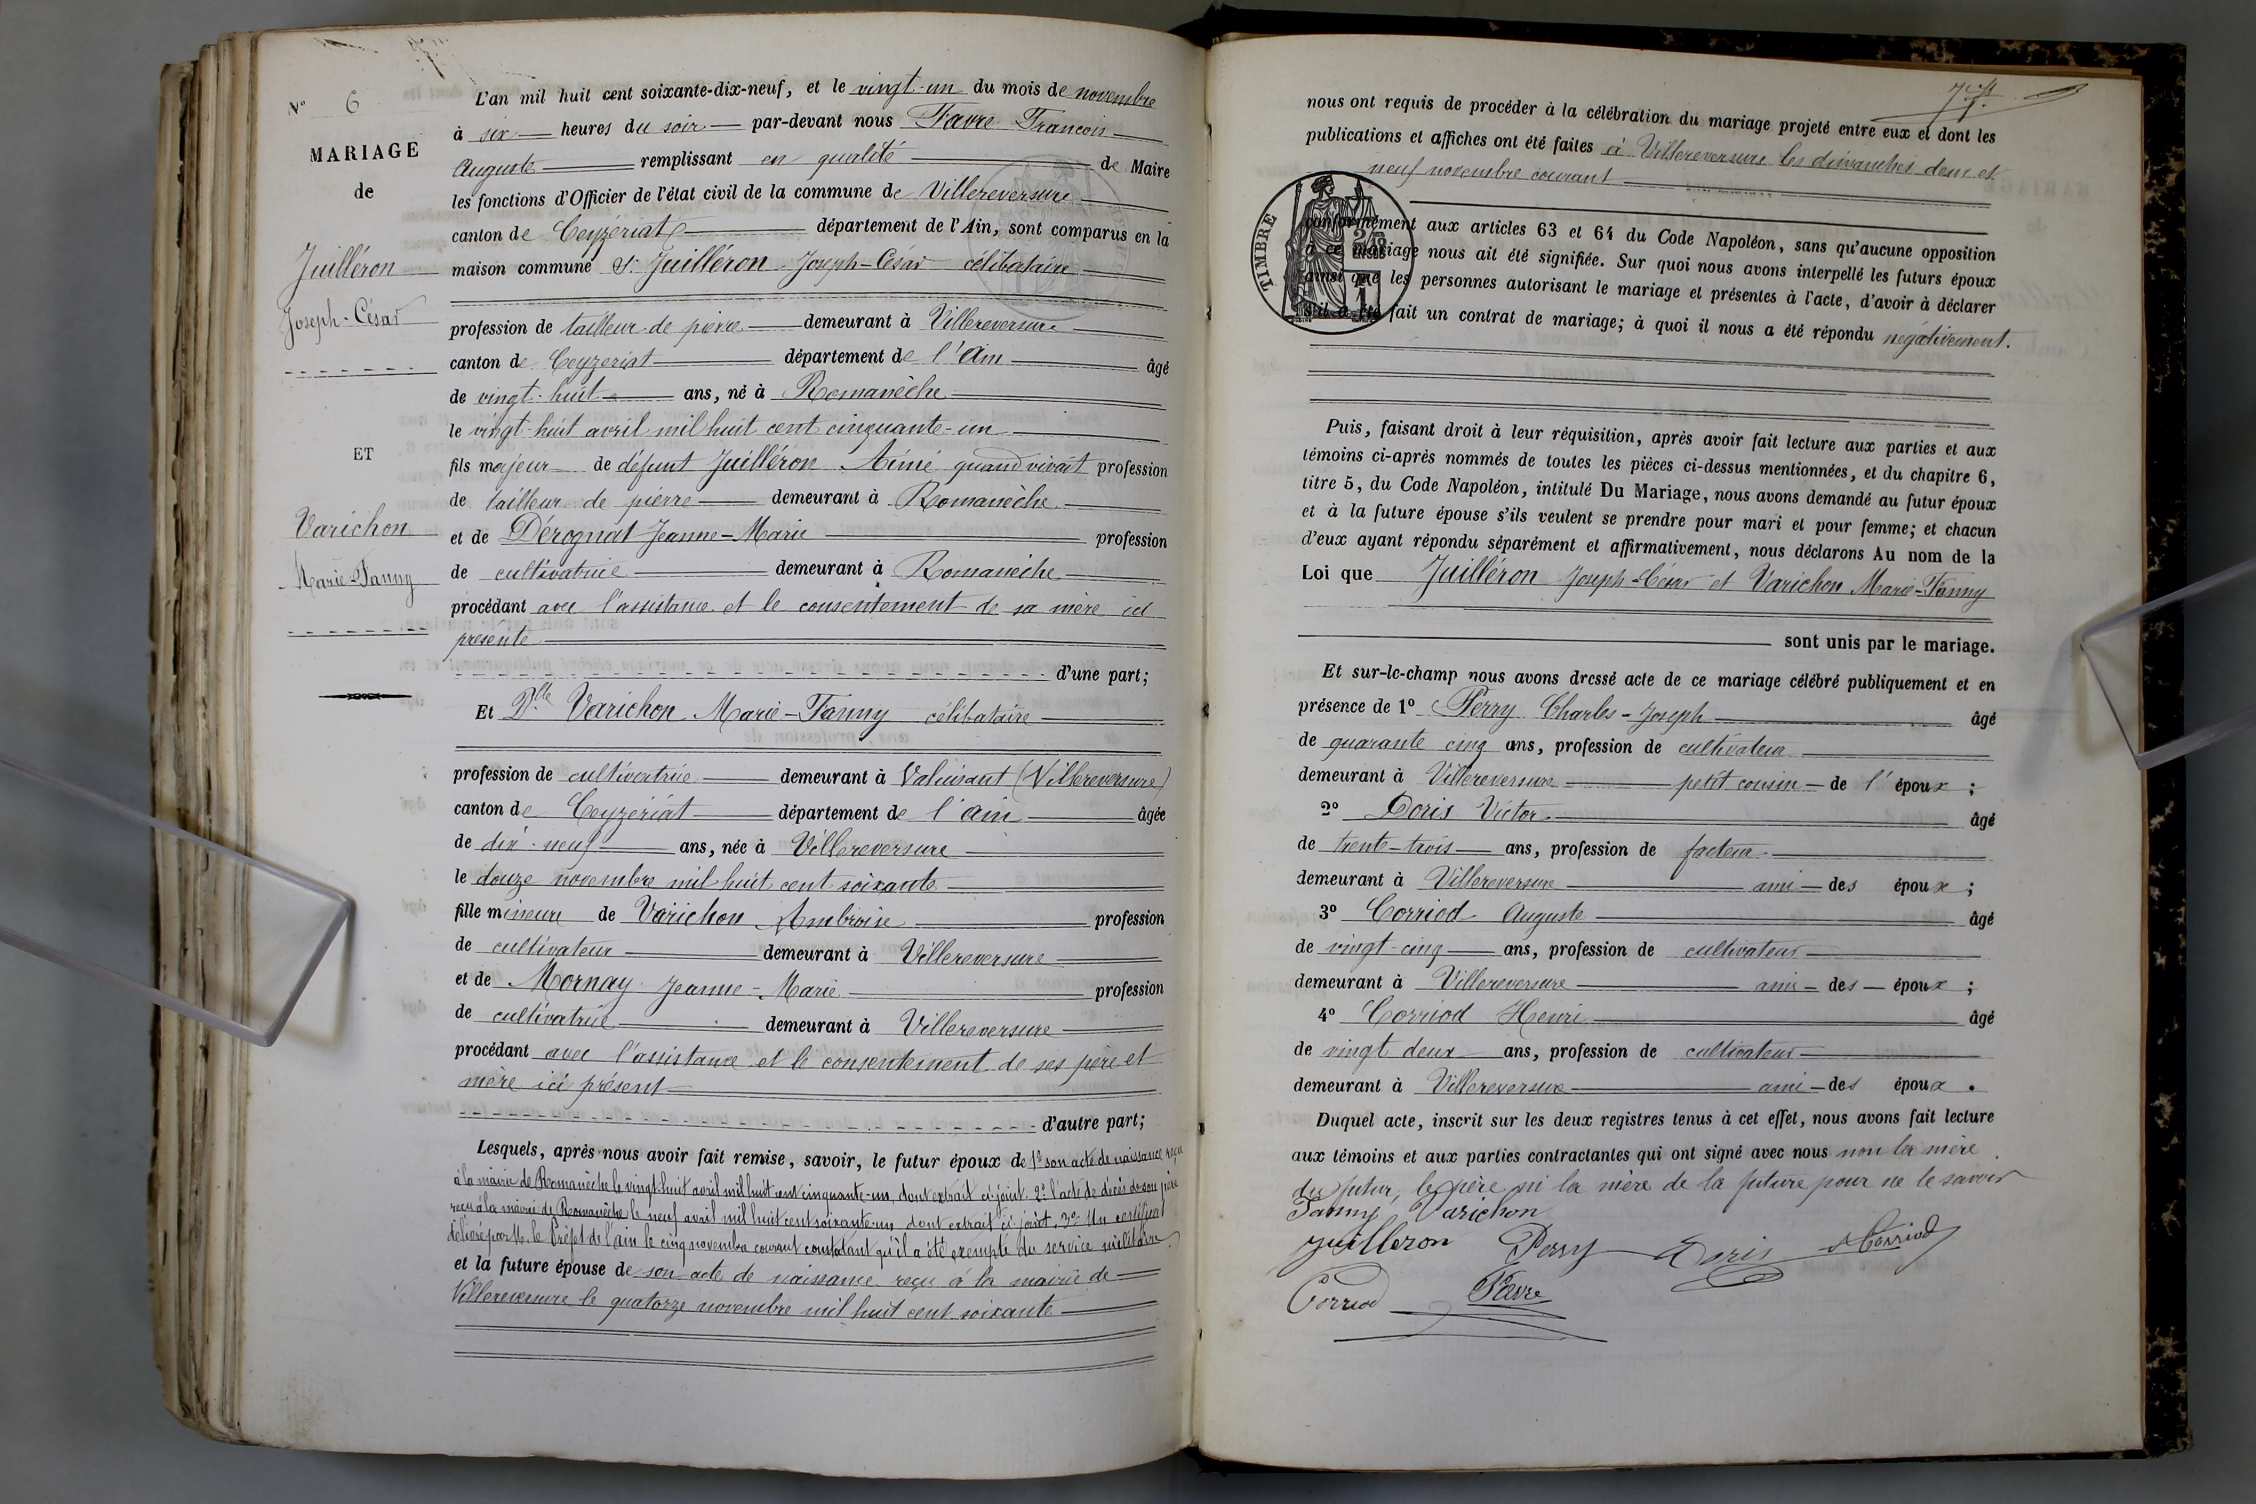 N° 6
MARIAGE
de
Juilléron
Joseph-César
ET
Varichon
Marie-Fanny
L'an mil huit cent soixante-dix-neuf, et le vingt-un du mois de novembre
à six heures du soir par-devant nous Favre François
Auguste remplissant en qualité de Maire
les fonctions d'Officier de l'état civil de la commune de Villereversure
canton de Ceyzériat département de l'Ain, sont comparus en la
maison commune Sr Juilléron Joseph-César célibataire
profession de tailleur de pierre demeurant à Villereversure
canton de Ceyzeriat département de l'Ain âgé
de vingt-huit ans, né à Romanèche
le vingt-huit avril mil huit cent cinquante-un
fils majeur de défunt Juilléron Aimé quand vivait profession
de tailleur de pierre demeurant à Romanèche
et de Dérognat Jeanne-Marie profession
de cultivatrice demeurant à Romanèche
procédant avec l'assistance et le consentement de sa mère ici
présente
d'une part;
Et Dlle Varichon Marie-Fanny célibataire
profession de cultivatrice demeurant à Valuisant (Villereversure)
canton de Ceyzériat département de l'Ain âgée
de dix-neuf ans, née à Villereversure
le douze novembre mil huit cent soixante
fille mineure de Varichon Ambroise profession
de cultivateur demeurant à Villereversure
et de Mornay Jeanne-Marie profession
de cultivatrice demeurant à Villereversure
procédant avec l'assistance et le consentement de ses père et
mère ici présent
d'autre part;
Lesquels, après nous avoir fait remise, savoir, le futur époux de 1° son acte de naissance reçu
à la mairie de Romanèche le vingt-huit avril mil huit cent cinquante-un, dont extrait ci-joint. 2° l'acte de décès de son père
reçu à la mairie de Romanèche le neuf avril mil huit cent soixante-un dont extrait ci-joint. 3° Un certificat
délivré par M. le Préfet de l'ain le cinq novembre courant constatant qu'il a été exempté du service militaire.
et la future épouse de son acte de naissance reçu à la mairie de
Villereversure le quatorze novembre mil huit cent soixante
nous ont requis de procéder à la célébration du mariage projeté entre eux et dont les
publications et affiches ont été faites à Villereversure les dimanches deux et
neuf novembre courant
TIMBRE
conformément aux articles 63 et 64 du Code Napoléon, sans qu'aucune opposition
à ce mariage nous ait été signifiée. Sur quoi nous avons interpellé les futurs époux
ainsi que les personnes autorisant le mariage et présentes à l'acte, d'avoir à déclarer
s'il a été fait un contrat de mariage; à quoi il nous a été répondu négativement.
Puis, faisant droit à leur réquisition, après avoir fait lecture aux parties et aux
témoins ci-après nommés de toutes les pièces ci-dessus mentionnées, et du chapitre 6,
titre 5, du Code Napoléon, intitulé Du Mariage, nous avons demandé au futur époux
et à la future épouse s'ils veulent se prendre pour mari et pour femme; et chacun
d'eux ayant répondu séparément et affirmativement, nous déclarons Au nom de la
Loi que Juilléron Joseph-César et Varichon Marie-Fanny
sont unis par le mariage.
Et sur-le-champ nous avons dressé acte de ce mariage célébré publiquement et en
présence de 1° Perry Charles-Joseph âgé
de quarante cinq ans, profession de cultivateur
demeurant à Villereversure petit cousin de l'époux;
2° Doris Victor âgé
de trente-trois ans, profession de facteur
demeurant à Villereversure ami des époux;
3° Corriod Auguste âgé
de vingt-cinq ans, profession de cultivateur
demeurant à Villereversure ami des époux;
4° Corriod Henri âgé
de vingt deux ans, profession de cultivateur
demeurant à Villereversure ami des époux.
Duquel acte, inscrit sur les deux registres tenus à cet effet, nous avons fait lecture
aux témoins et aux parties contractantes qui ont signé avec nous non la mère
du futur, le père ni la mère de la future pour ne le savoir
Fanny Varichon
Juilleron Perry Doris A Corriod
Corriod Favre